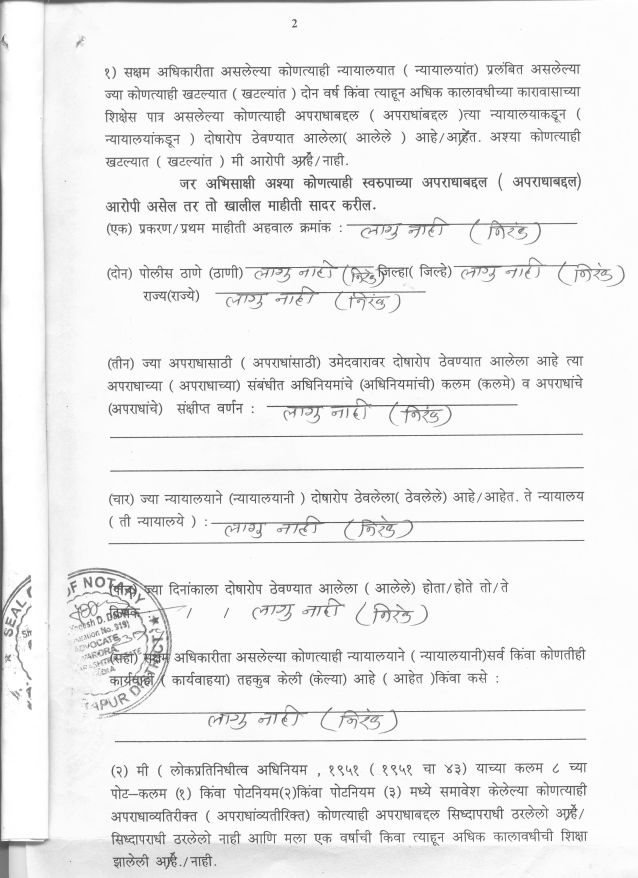 2
१) सक्षम अधिकारीता असलेल्या कोणत्याही न्यायालयात ( न्यायालयांत) प्रलंबित असलेल्या
ज्या कोणत्याही खटल्यात ( खटल्यांत ) दोन वर्ष किंवा त्याहून अधिक कालावधीच्या कारावासाच्या
शिक्षेस पात्र असलेल्या कोणत्याही अपराधाबद्दल ( अपराधांबद्दल )त्या न्यायालयाकडून (
न्यायालयांकडून ) दोषारोप ठेवण्यात आलेला( आलेले ) आहे/आहेत. अश्या कोणत्याही
खटल्यात ( खटल्यांत ) मी आरोपी आहे/नाही.
जर अभिसाक्षी अश्या कोणत्याही स्वरुपाच्या अपराधाबद्दल ( अपराधाबद्दल)
आरोपी असेल तर तो खालील माहीती सादर करील.
(एक) प्रकरण/प्रथम माहीती अहवाल क्रमांक : लागु नाही (निरंक)
(दोन) पोलीस ठाणे (ठाणी) लागु नाही (निरंक) जिल्हा( जिल्हे) लागु नाही (निरंक)
राज्य(राज्ये) लागु नाही (निरंक)
(तीन) ज्या अपराधासाठी ( अपराधांसाठी) उमेदवारावर दोषारोप ठेवण्यात आलेला आहे त्या
अपराधाच्या ( अपराधाच्या) संबंधीत अधिनियमांचे (अधिनियमांची) कलम (कलमे) व अपराधांचे
(अपराधांचे) संक्षीप्त वर्णन : लागु नाही (निरंक)
(चार) ज्या न्यायालयाने (न्यायालयानी ) दोषारोप ठेवलेला( ठेवलेले) आहे/आहेत. ते न्यायालय
( ती न्यायालये ) : लागु नाही (निरंक)
(पाच) ज्या दिनांकाला दोषारोप ठेवण्यात आलेला ( आलेले) होता/होते तो/ते
दिनांक / / लागु नाही (निरंक)
(सहा) सक्षम अधिकारीता असलेल्या कोणत्याही न्यायालयाने ( न्यायालयानी)सर्व किंवा कोनतीही
कार्यवाही ( कार्यवाहया) तहकुब केली (केल्या) आहे ( आहेत )किंवा कसे :
लागु नाही (निरंक)
(२) मी ( लोकप्रतिनिधीत्व अधिनियम , १९५१ ( १९५१ चा ४३) याच्या कलम ८ च्या
पोट–कलम (१) किंवा पोटनियम(२)किंवा पोटनियम (३) मध्ये समावेश केलेल्या कोणत्याही
अपराधाव्यतिरीक्त ( अपराधांव्यतीरिक्त) कोणत्याही अपराधाबद्दल सिध्दापराधी ठरलेलो आहे/
सिध्दापराधी ठरलेलो नाही आणि मला एक वर्षाची किवा त्याहून अधिक कालावधीची शिक्षा
झालेली आहे./नाही.
OF NOTARY
ADVOCATE